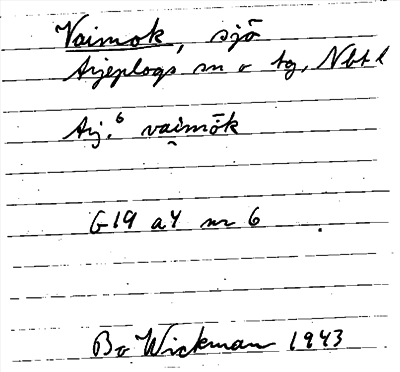 Vaimok, sjö
Arjeplogs sn o tg, Nbt l
Arj.⁶ vai̭mōk
G19 a4 nr 6
Bo Wickman 1943